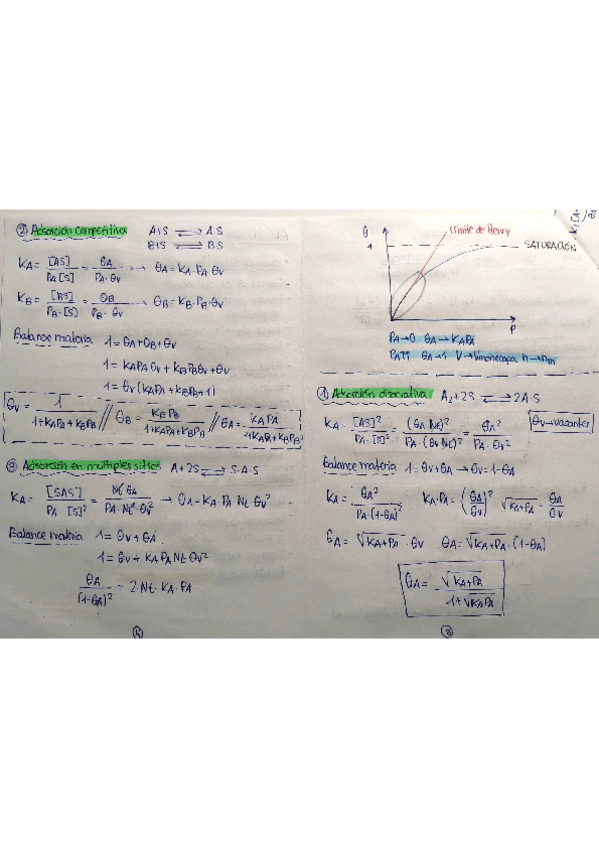 ② Adsorción competitiva A+S ⇌ A·S
B+S ⇌ B·S
KA = [AS] / PA[S] = θA / PA·θv → θA = KA·PA·θv
KB = [BS] / PB·[S] = θB / PB·θv → θB = KB·PB·θv
Balance materia 1 = θA+θB+θv
1 = KAPAθv + KBPBθv + θv
1 = θv(KAPA + KBPB+1)
θv = 1 / 1+KAPA+KBPB // θB = KBPB / 1+KAPA+KBPB // θA = KAPA / 1+KAPA+KBPB
③ Adsorción en múltiples sitios A+2S ⇌ S·A·S
KA = [SAS] / PA·[S]² = Nt·θA / PA·Nt²·θv² → θA = KA·PA·Nt·θv²
Balance materia 1 = θv + θA
1 = θv + KAPA Nt θv²
θA / (1-θA)² = 2·Nt·KA·PA
θ
1
Límite de Henry
SATURACIÓN
P
PA→0 θA→KAPA
PA↑↑ θA→1 V→Vmonocapa n→nm
① Adsorción disociativa A2+2S ⇌ 2A·S
KA = [AS]² / PA·[S]² = (θA Nt)² / PA·(θv Nt)² = θA² / PA·θv²
θv→vacantes
Balance materia 1 = θv+θA → θv = 1-θA
KA = θA² / PA·(1-θA)² KA·PA = (θA / θv)² √KA+PA = θA / θv
θA = √KA+PA · θv θA = √KA+PA · (1-θA)
θA = √KA+PA / 1+√KAPA